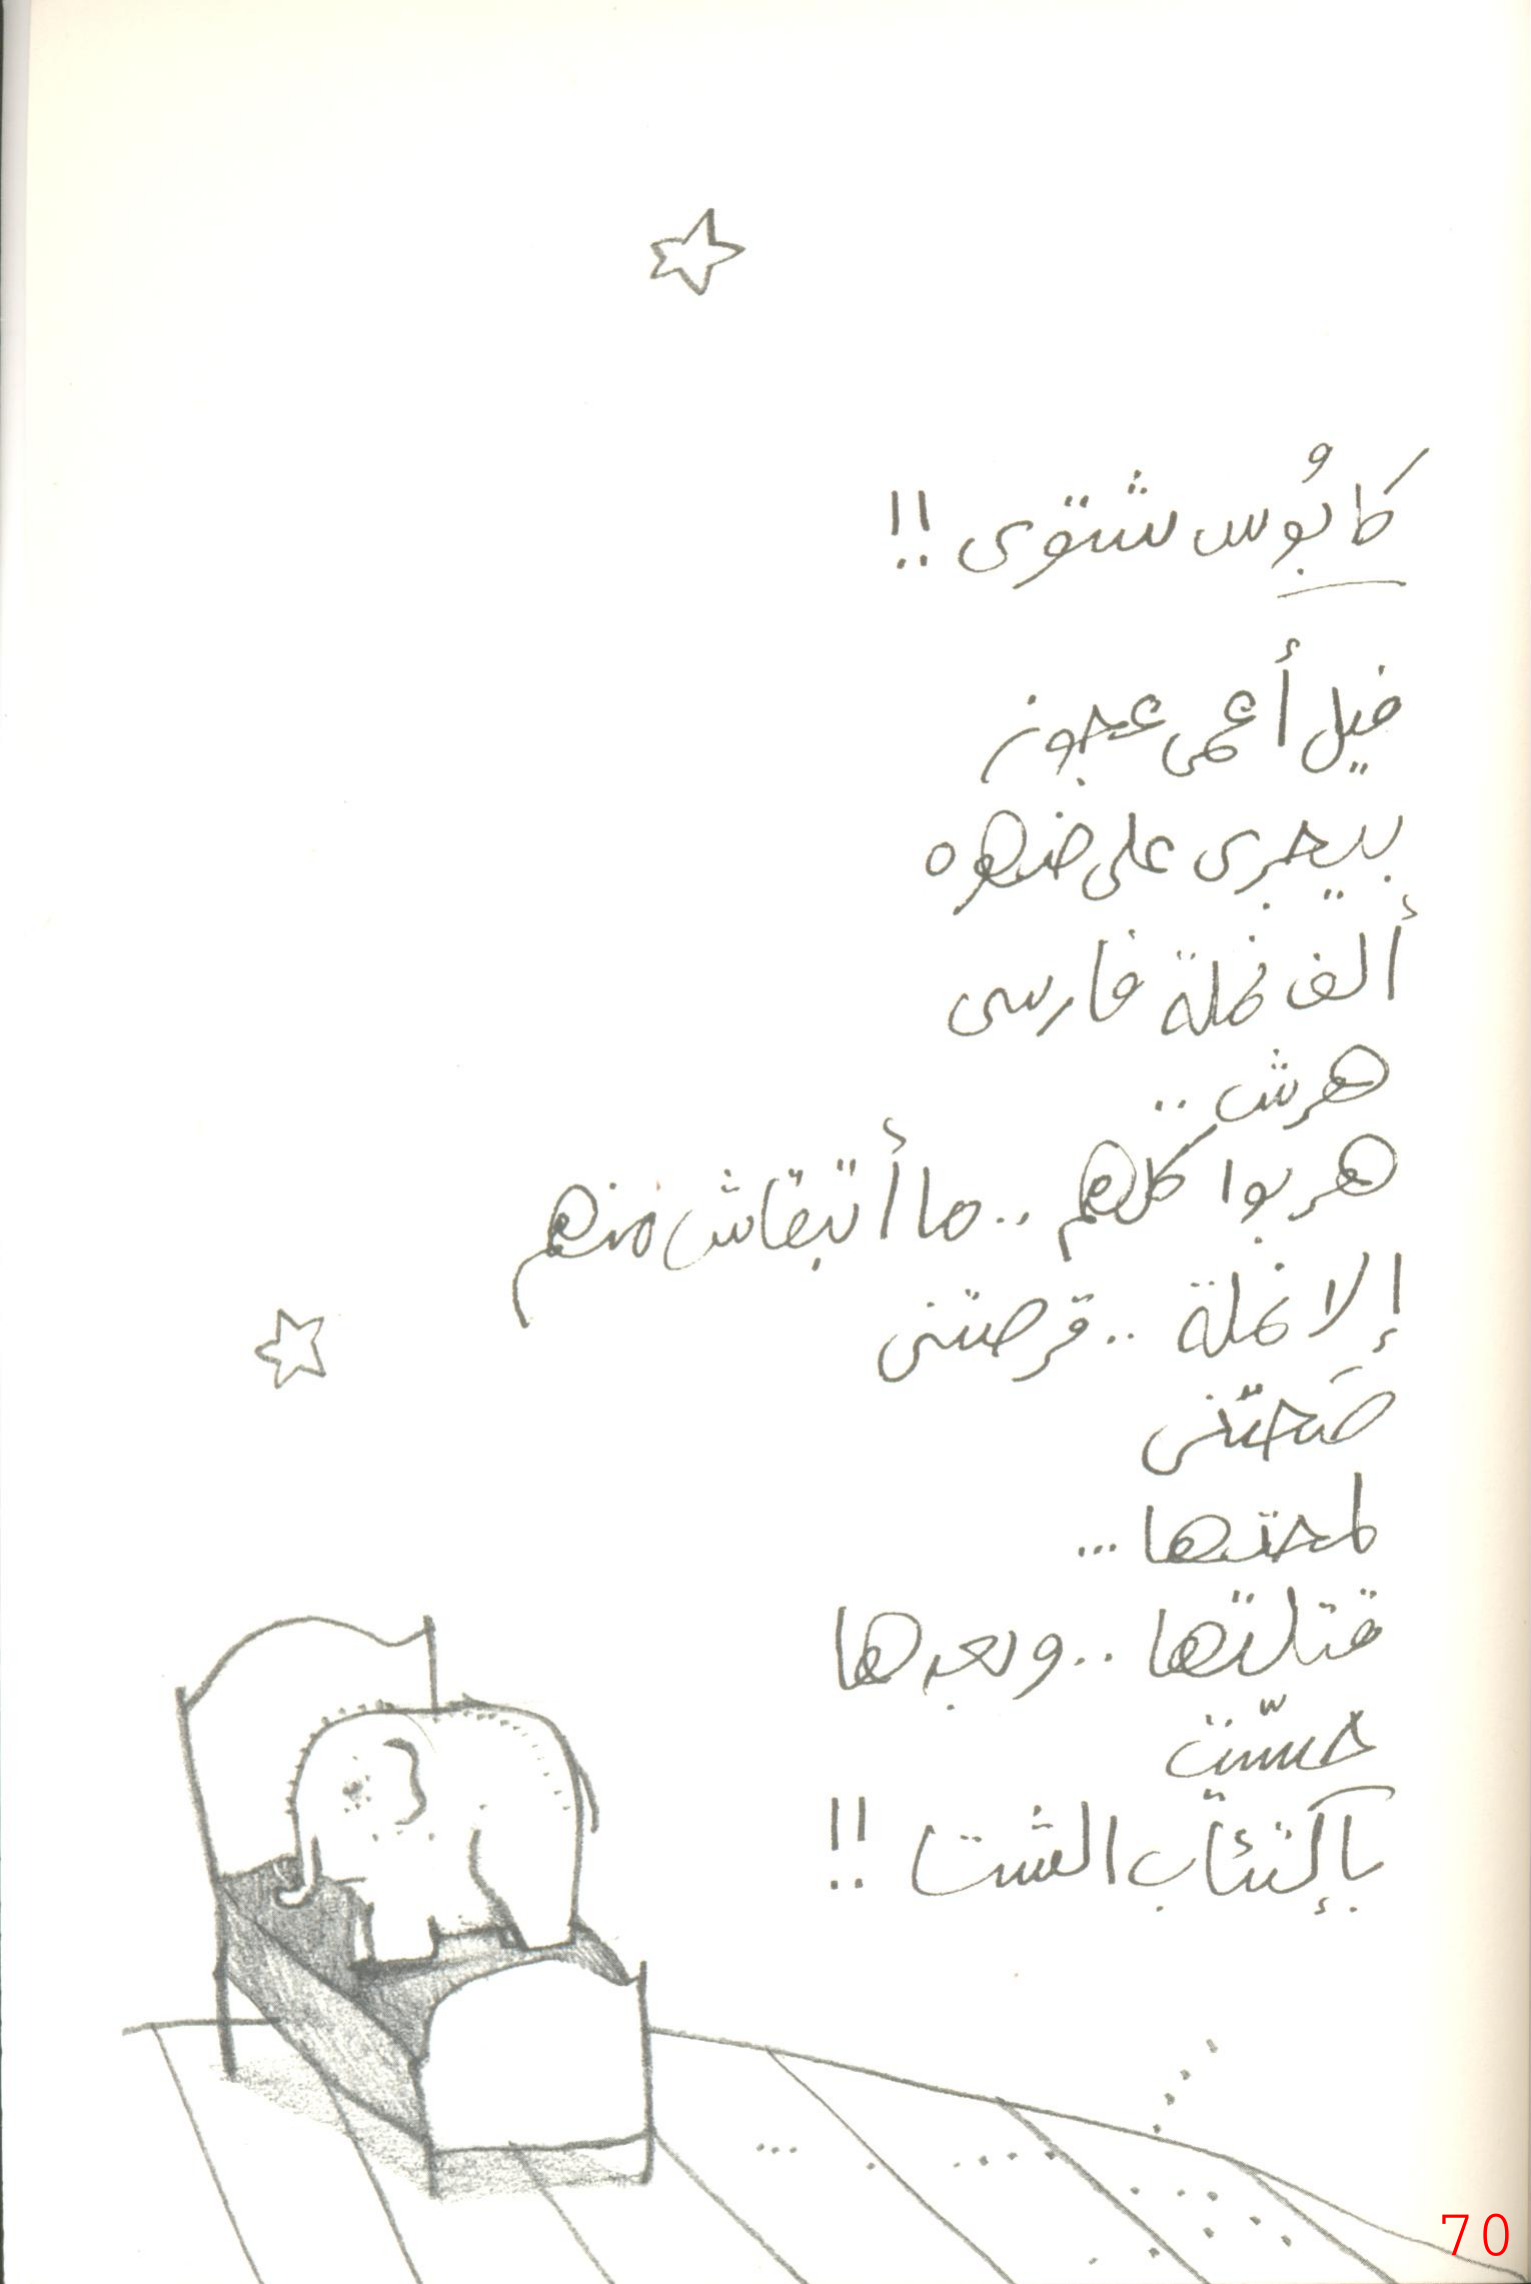 كابُوس شتوى !!
فيل أعمى عجوز
بيجرى على ضهره
ألف نملة فارسى
هرش ..
هربوا كلهم .. ما أتبقاش منهم
إلا نملة .. قرصتنى
صَحتنى
لمحتها ...
قتلتها .. وبعدها
حسّيت
بإكتئاب الشتا !!
70